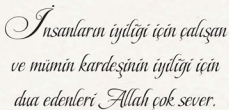 İnsanların iyiliği için çalışan
ve mümin kardeşinin iyiliği için
dua edenleri Allah çok sever.